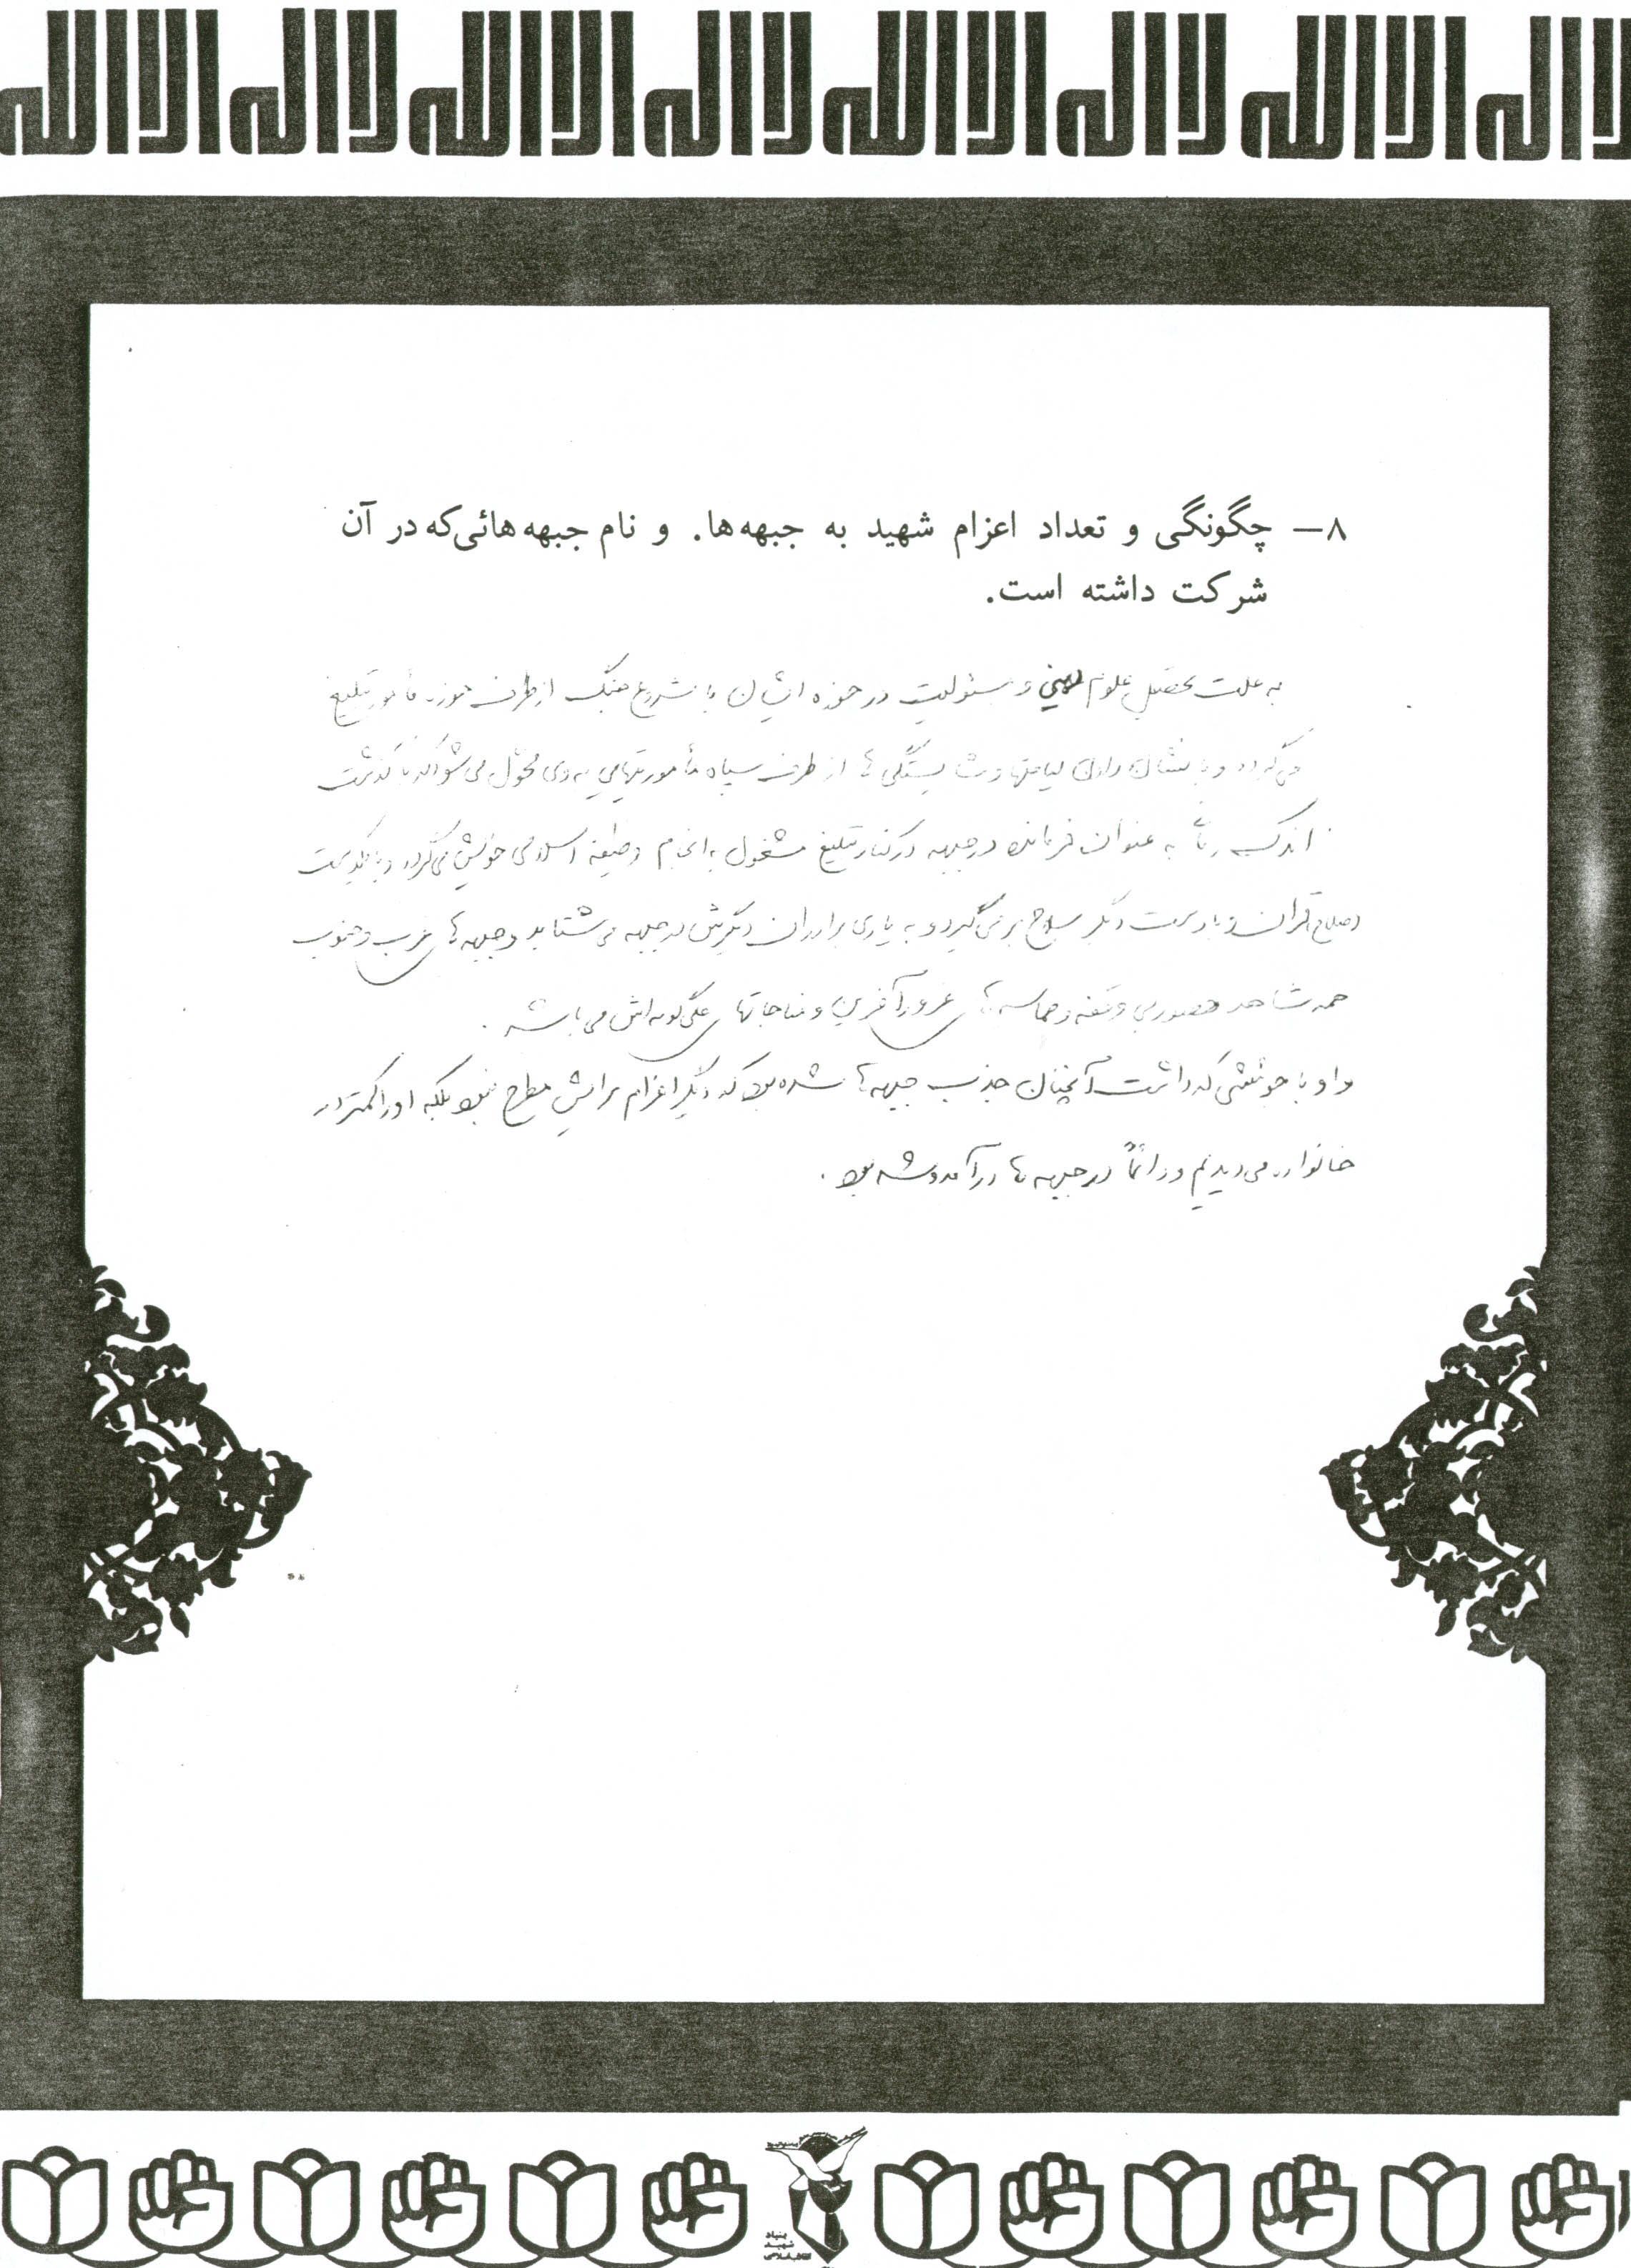 لااله الاالله لااله الاالله لااله الاالله لااله الاالله
۸— چگونگی و تعداد اعزام شهید به جبهه‌ها. و نام جبهه‌هائی‌که در آن
شرکت داشته است.
به علت تحصیل علوم دینی و مسئولیت در حوزه ایشان با شروع جنگ از طرف حوزه مأمور تبلیغ
می‌گردد و با نشان دادن لیاقتها و شایستگی‌ها از طرف سپاه مأموریتهایی به وی محول می‌شود که با گذشت
اندک زمانی به عنوان فرمانده در جبهه در کنار تبلیغ مشغول به انجام وظیفه اسلامی خویش می‌گردد و با یکدست
قرآن و با دست دیگر سلاح برمی‌گیرد و به یاری برادران دیگرش در جبهه می‌شتابد و جبهه‌های غرب و جنوب
همه شاهد حضور بی‌وقفه و حماسه‌های غرورآفرین و مناجاتهای علی‌گونه‌اش می‌باشد.
و او با جوششی که داشت آنچنان جذب جبهه‌ها شده بود که دیگر اعزام برایش مطرح نبود بلکه او را کمتر در
خانواده می‌دیدیم و دائماً در جبهه‌ها در آمد و شد بود.
بنیاد
شهید
انقلاب اسلامی